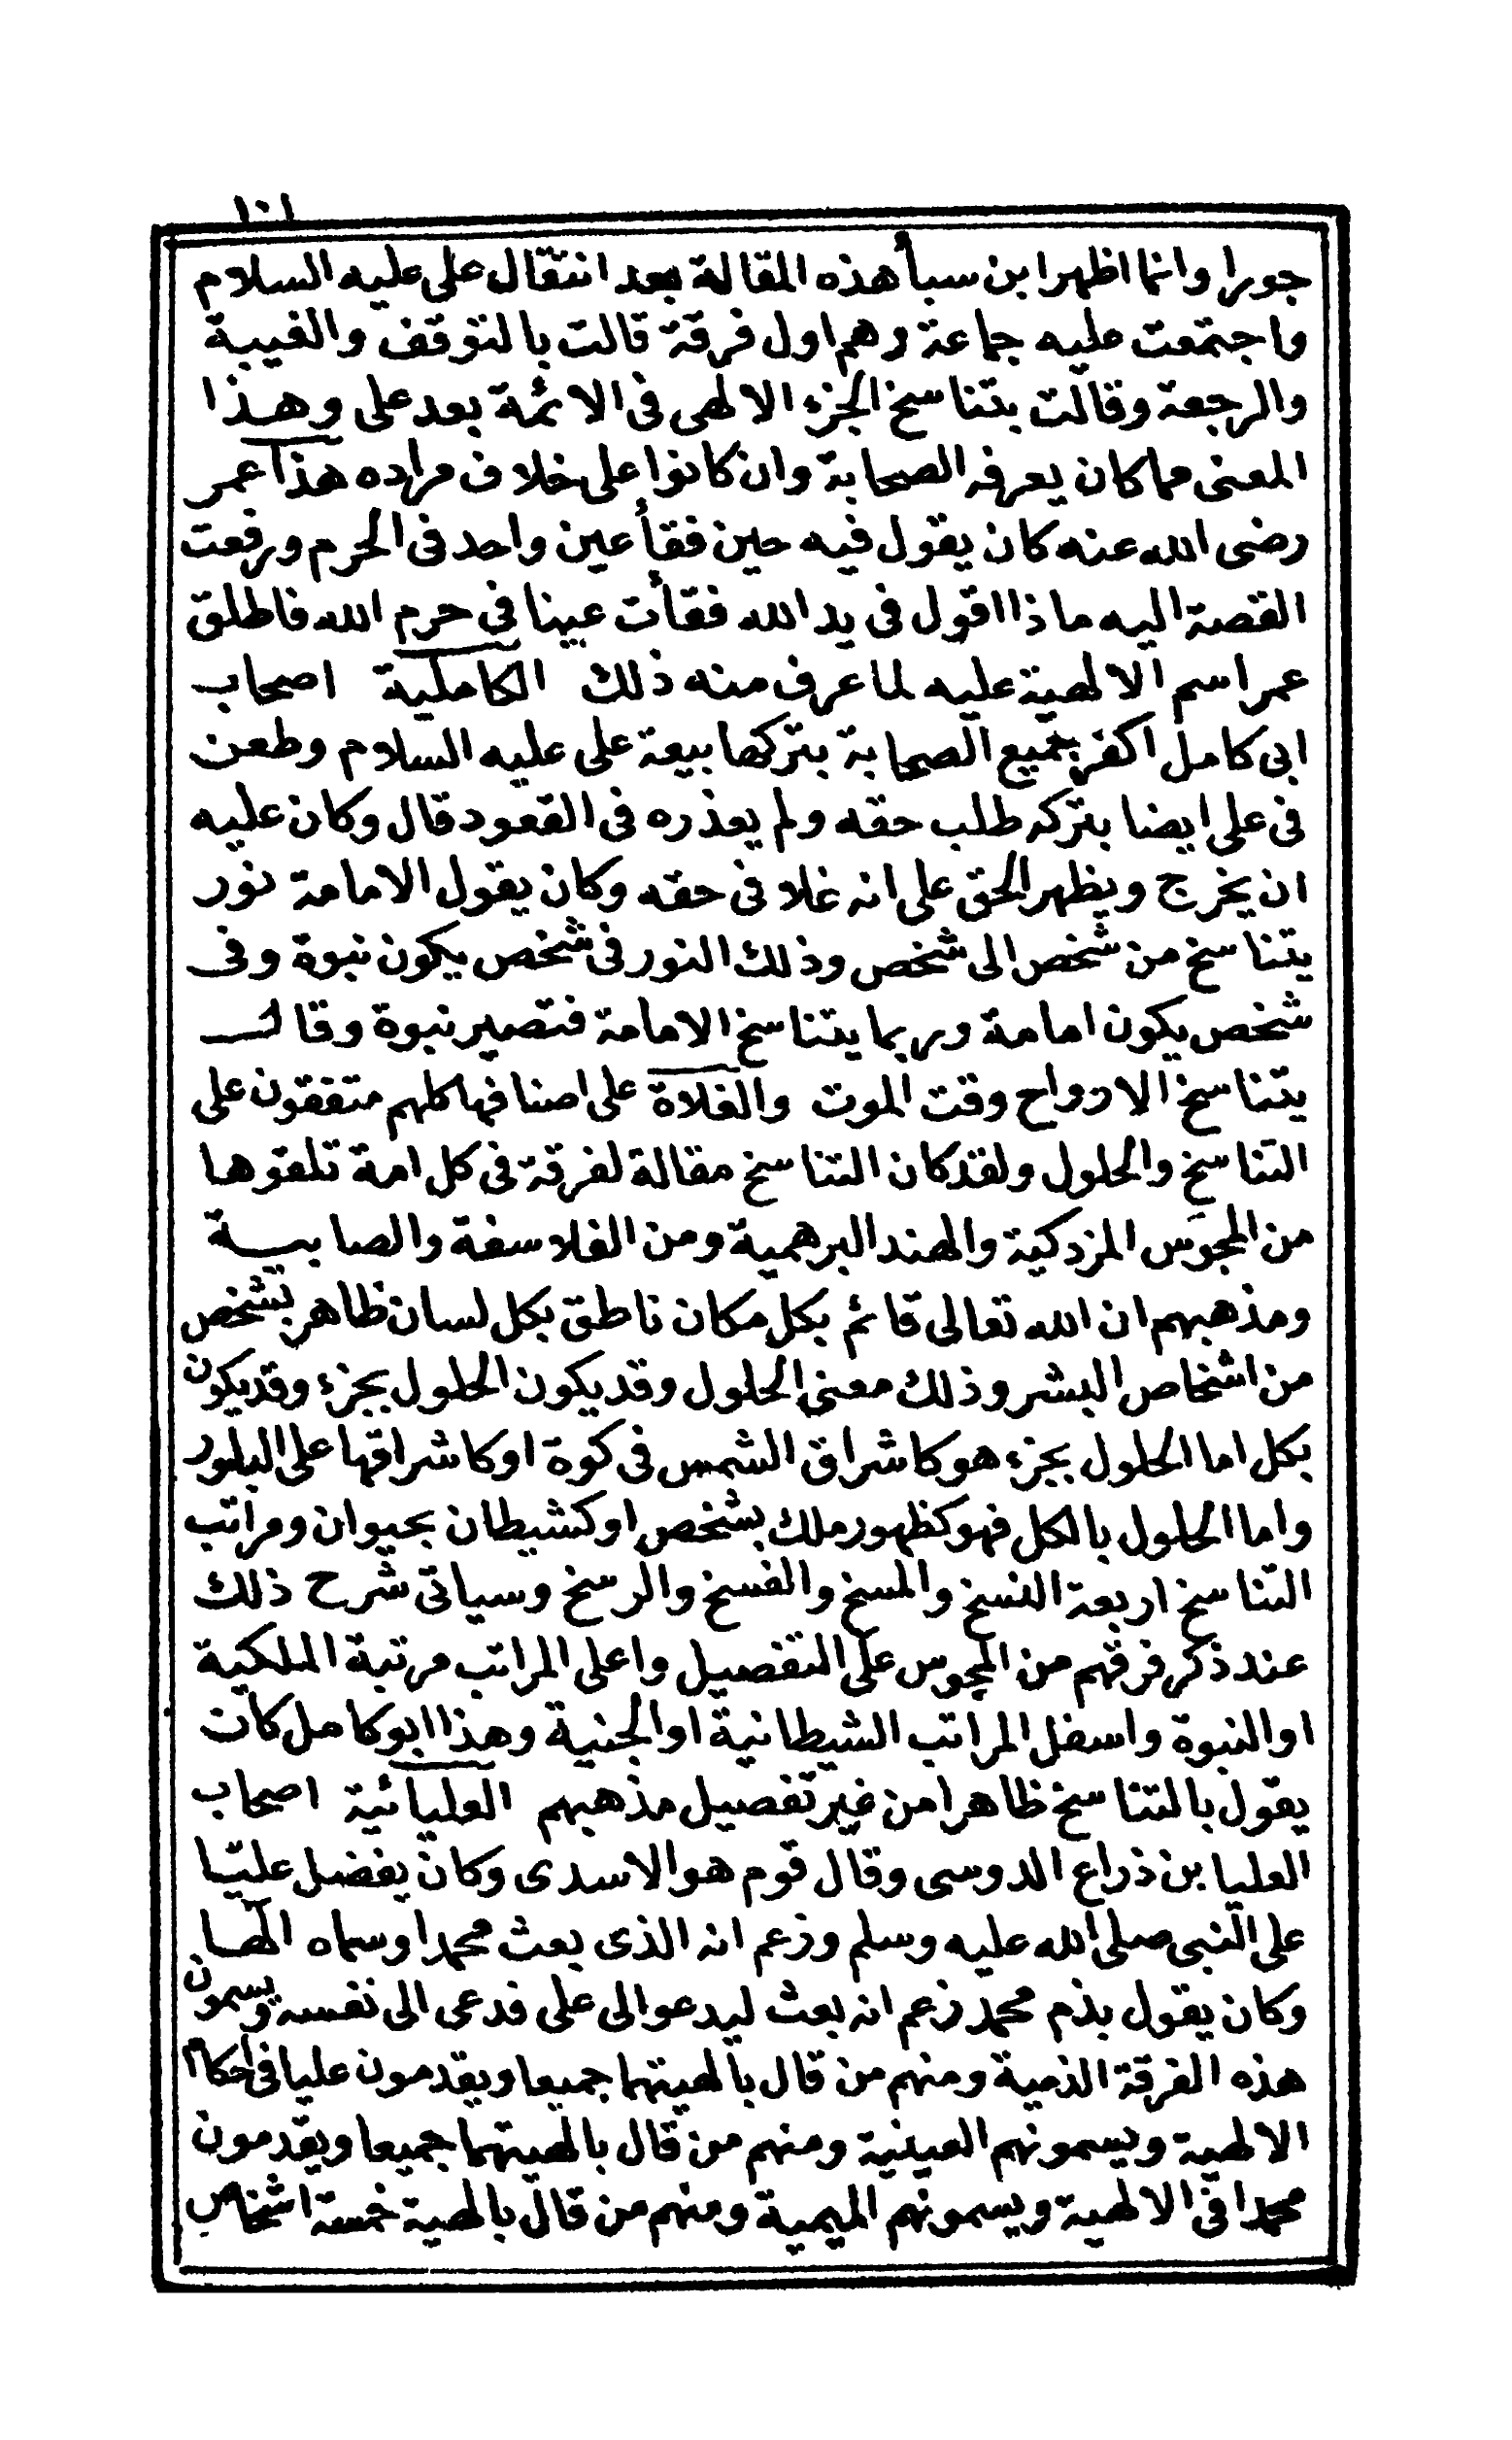 ١٠١
جورا وانما اظهر ابن سبأ هذه المقالة بعد انتقال على عليه السلام
واجتمعت عليه جماعة وهم اول فرقة قالت بالتوقف والغيبة
والرجعة وقالت بتناسخ الجزء الالهى فى الائمة بعد على وهذا
المعنى مما كان يعرفه الصحابة وان كانوا على خلاف مراده هذا عمر
رضى الله عنه كان يقول فيه حين فقأ عين واحد فى الحرم ورفعت
القصة اليه ماذا اقول فى يد الله فقأت عينا فى حرم الله فاطلق
عمر اسم الالهية عليه لما عرف منه ذلك الكاملية اصحاب
ابى كامل اكفر جميع الصحابة بتركها بيعة على عليه السلام وطعن
فى على ايضا بتركه طلب حقه ولم يعذره فى القعود قال وكان عليه
ان يخرج ويظهر الحق على انه غلا فى حقه وكان يقول الامامة نور
يتناسخ من شخص الى شخص وذلك النور فى شخص يكون نبوة وفى
شخص يكون امامة وربما يتناسخ الامامة فتصير نبوة وقال
يتناسخ الارواح وقت الموت والغلاة على اصنافها كلهم متفقون على
التناسخ والحلول ولقد كان التناسخ مقالة لفرقة فى كل امة تلقوها
من المجوس المزدكية والهند البرهمية ومن الفلاسفة والصابية
ومذهبهم ان الله تعالى قائم بكل مكان ناطق بكل لسان ظاهر بشخص
من اشخاص البشر وذلك معنى الحلول وقد يكون الحلول بجزء وقد يكون
بكل اما الحلول بجزء هو كاشراق الشمس فى كوة او كاشراقها على البلور
واما الحلول بالكل فهو كظهور ملك بشخص او كشيطان بحيوان ومراتب
التناسخ اربعة النسخ والمسخ والفسخ والرسخ وسياتى شرح ذلك
عند ذكر فرقهم من المجوس على التفصيل واعلى المراتب مرتبة الملكية
او النبوة واسفل المراتب الشيطانية او الجنية وهذا ابو كامل كان
يقول بالتناسخ ظاهرا من غير تفصيل مذهبهم العليائية اصحاب
العليا بن ذراع الدوسى وقال قوم هو الاسدى وكان يفضل عليّا
على النبى صلى الله عليه وسلم وزعم انه الذى بعث محمدا وسماه الها
وكان يقول بذم محمد زعم انه بعث ليدعو الى على فدعى الى نفسه ويسمون
هذه الفرقة الذمية ومنهم من قال بالهيتهما جميعا ويقدمون عليا فى احكام
الالهية ويسمونهم العينية ومنهم من قال بالهيتهما جميعا ويقدمون
محمدا فى الالهية ويسمونهم الميمية ومنهم من قال بالهية خمسة اشخاص